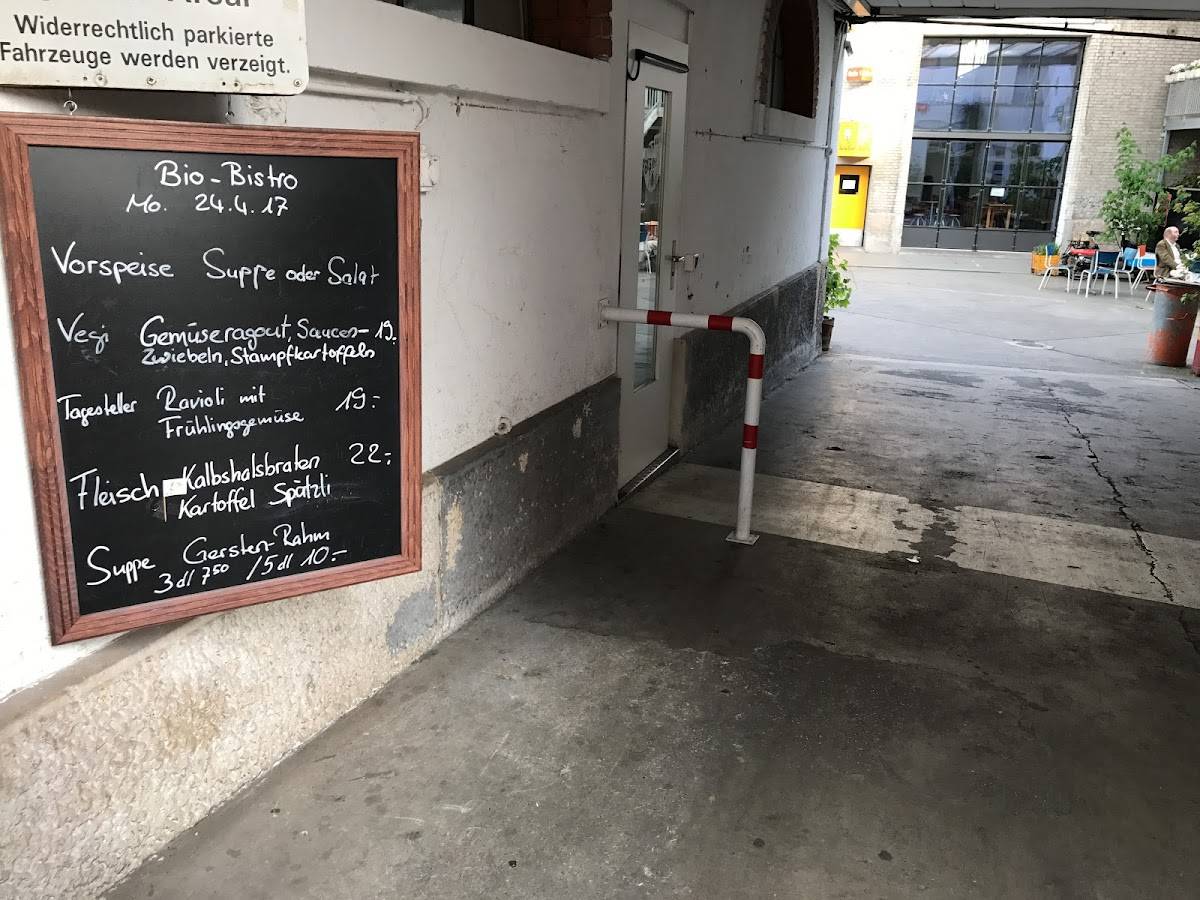 Widerrechtlich parkierte
Fahrzeuge werden verzeigt.
Bio-Bistro
Mo. 24.4.17
Vorspeise Suppe oder Salat
Vegi Gemüseragout, Saucen- 19.-
Zwiebeln, Stampfkartoffeln
Tagesteller Ravioli mit 19.-
Frühlingsgemüse
Fleisch Kalbshalsbraten 22.-
Kartoffel Spätzli
Suppe Gersten-Rahm
3dl 7⁵⁰ / 5dl 10.-